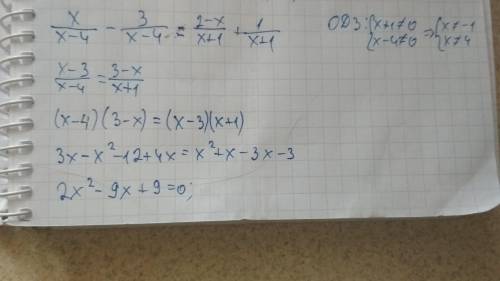 x/(x-4) - 3/(x-4) = (2-x)/(x+1) + 1/(x+1) ОДЗ: {x+1≠0 {x-4≠0 ⇒ {x≠-1 {x≠4
(x-3)/(x-4) = (3-x)/(x+1)
(x-4)(3-x)=(x-3)(x+1)
3x-x²-12+4x=x²+x-3x-3
2x²-9x+9=0;